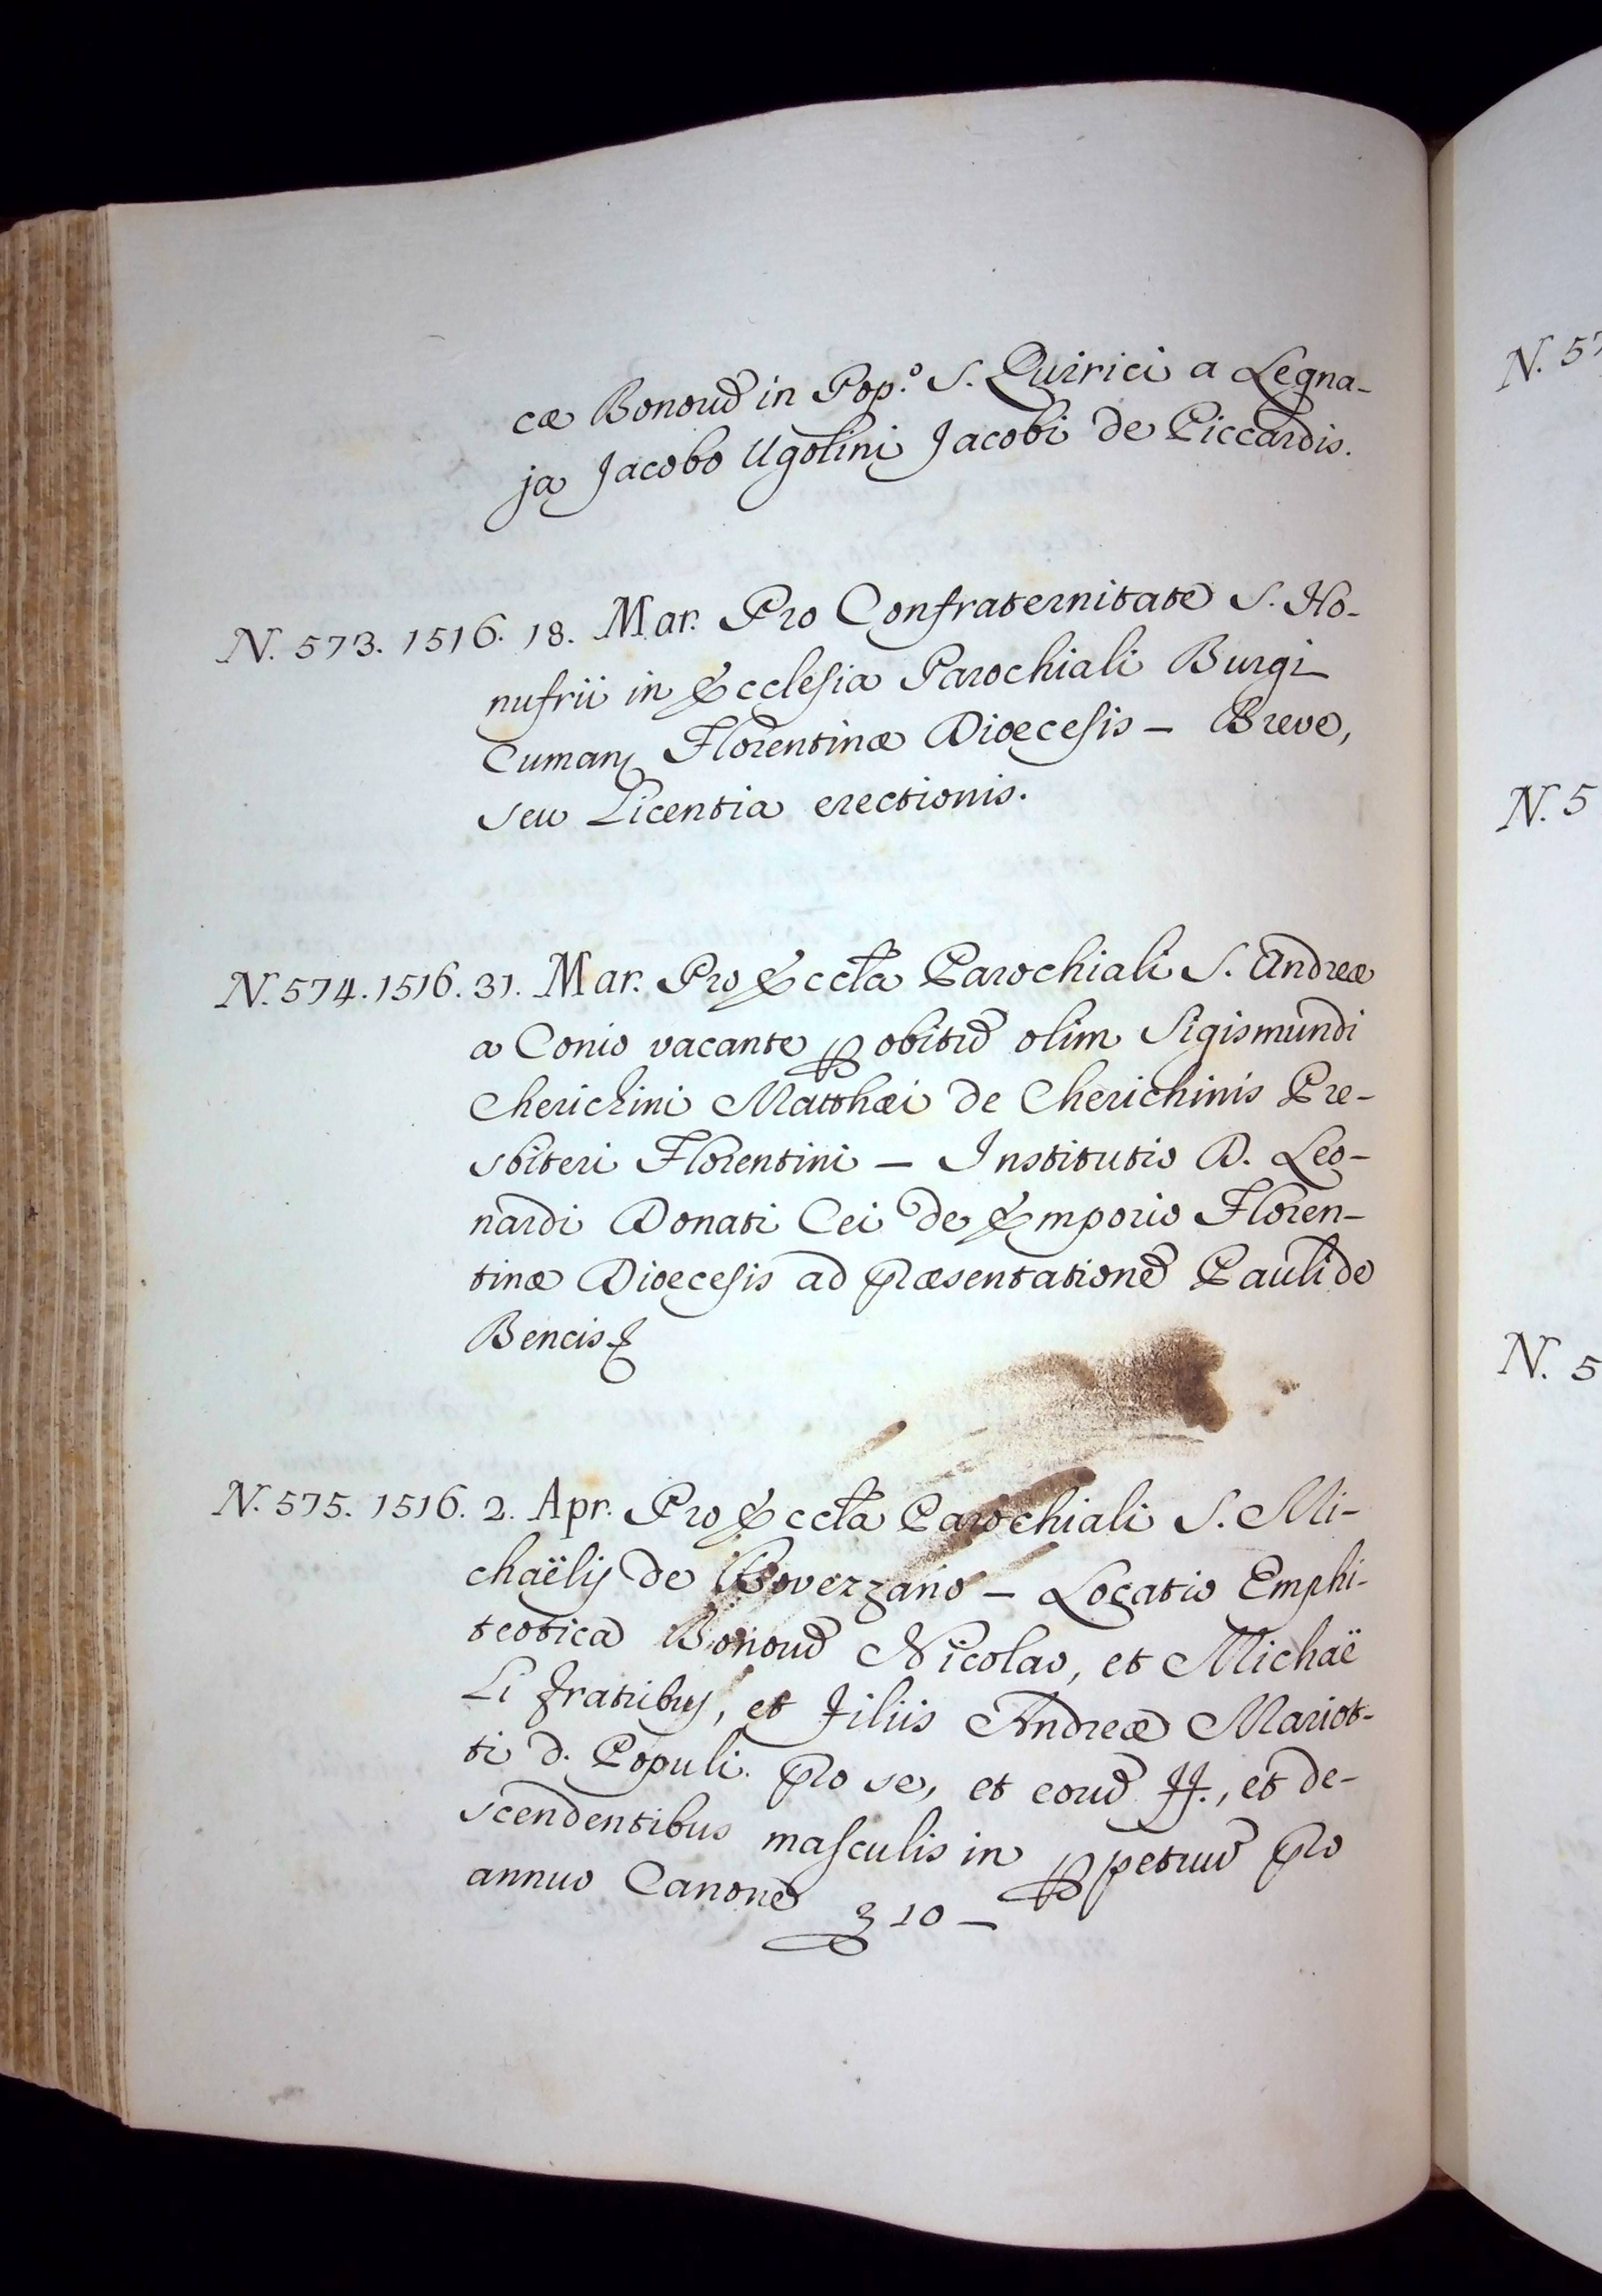 cæ Bonoũ in Pop.º S. Quirici a Legna-
ja Jacobo Ugolini Jacobi de Piccardis.
N. 573. 1516. 18. Mar. Pro Confraternitate S. Ho-
nufrii in Ecclesia Parochiali Burgi
Cuman Florentinæ Dioecesis – Breve,
seu Licentia erectionis.
N. 574. 1516. 31. Mar. Pro Eccľa Parochiali S. Andreæ
a Conio vacante ꝑ obitũ olim Sigismundi
Cherichini Matthæi de Cherichinis Pre-
sbiteri Florentini – Institutio D. Leo-
nardi Donati Cei de Emporio Floren-
tinæ Dioecesis ad præsentationẽ Pauli de
Bencis
N. 575. 1516. 2. Apr. Pro Eccľa Parochiali S. Mi-
chaëlis de Rovezzano – Locatio Emphi-
teotica Bonoũ Nicolao, et Michaë
li fratribus, et filiis Andreæ Mariot-
ti d. Populi pro se, et eoruẽ ff., et de-
scendentibus masculis in ꝑpetuũ pro
annuo Canone 3 10 –
N. 57
N. 5
N. 5